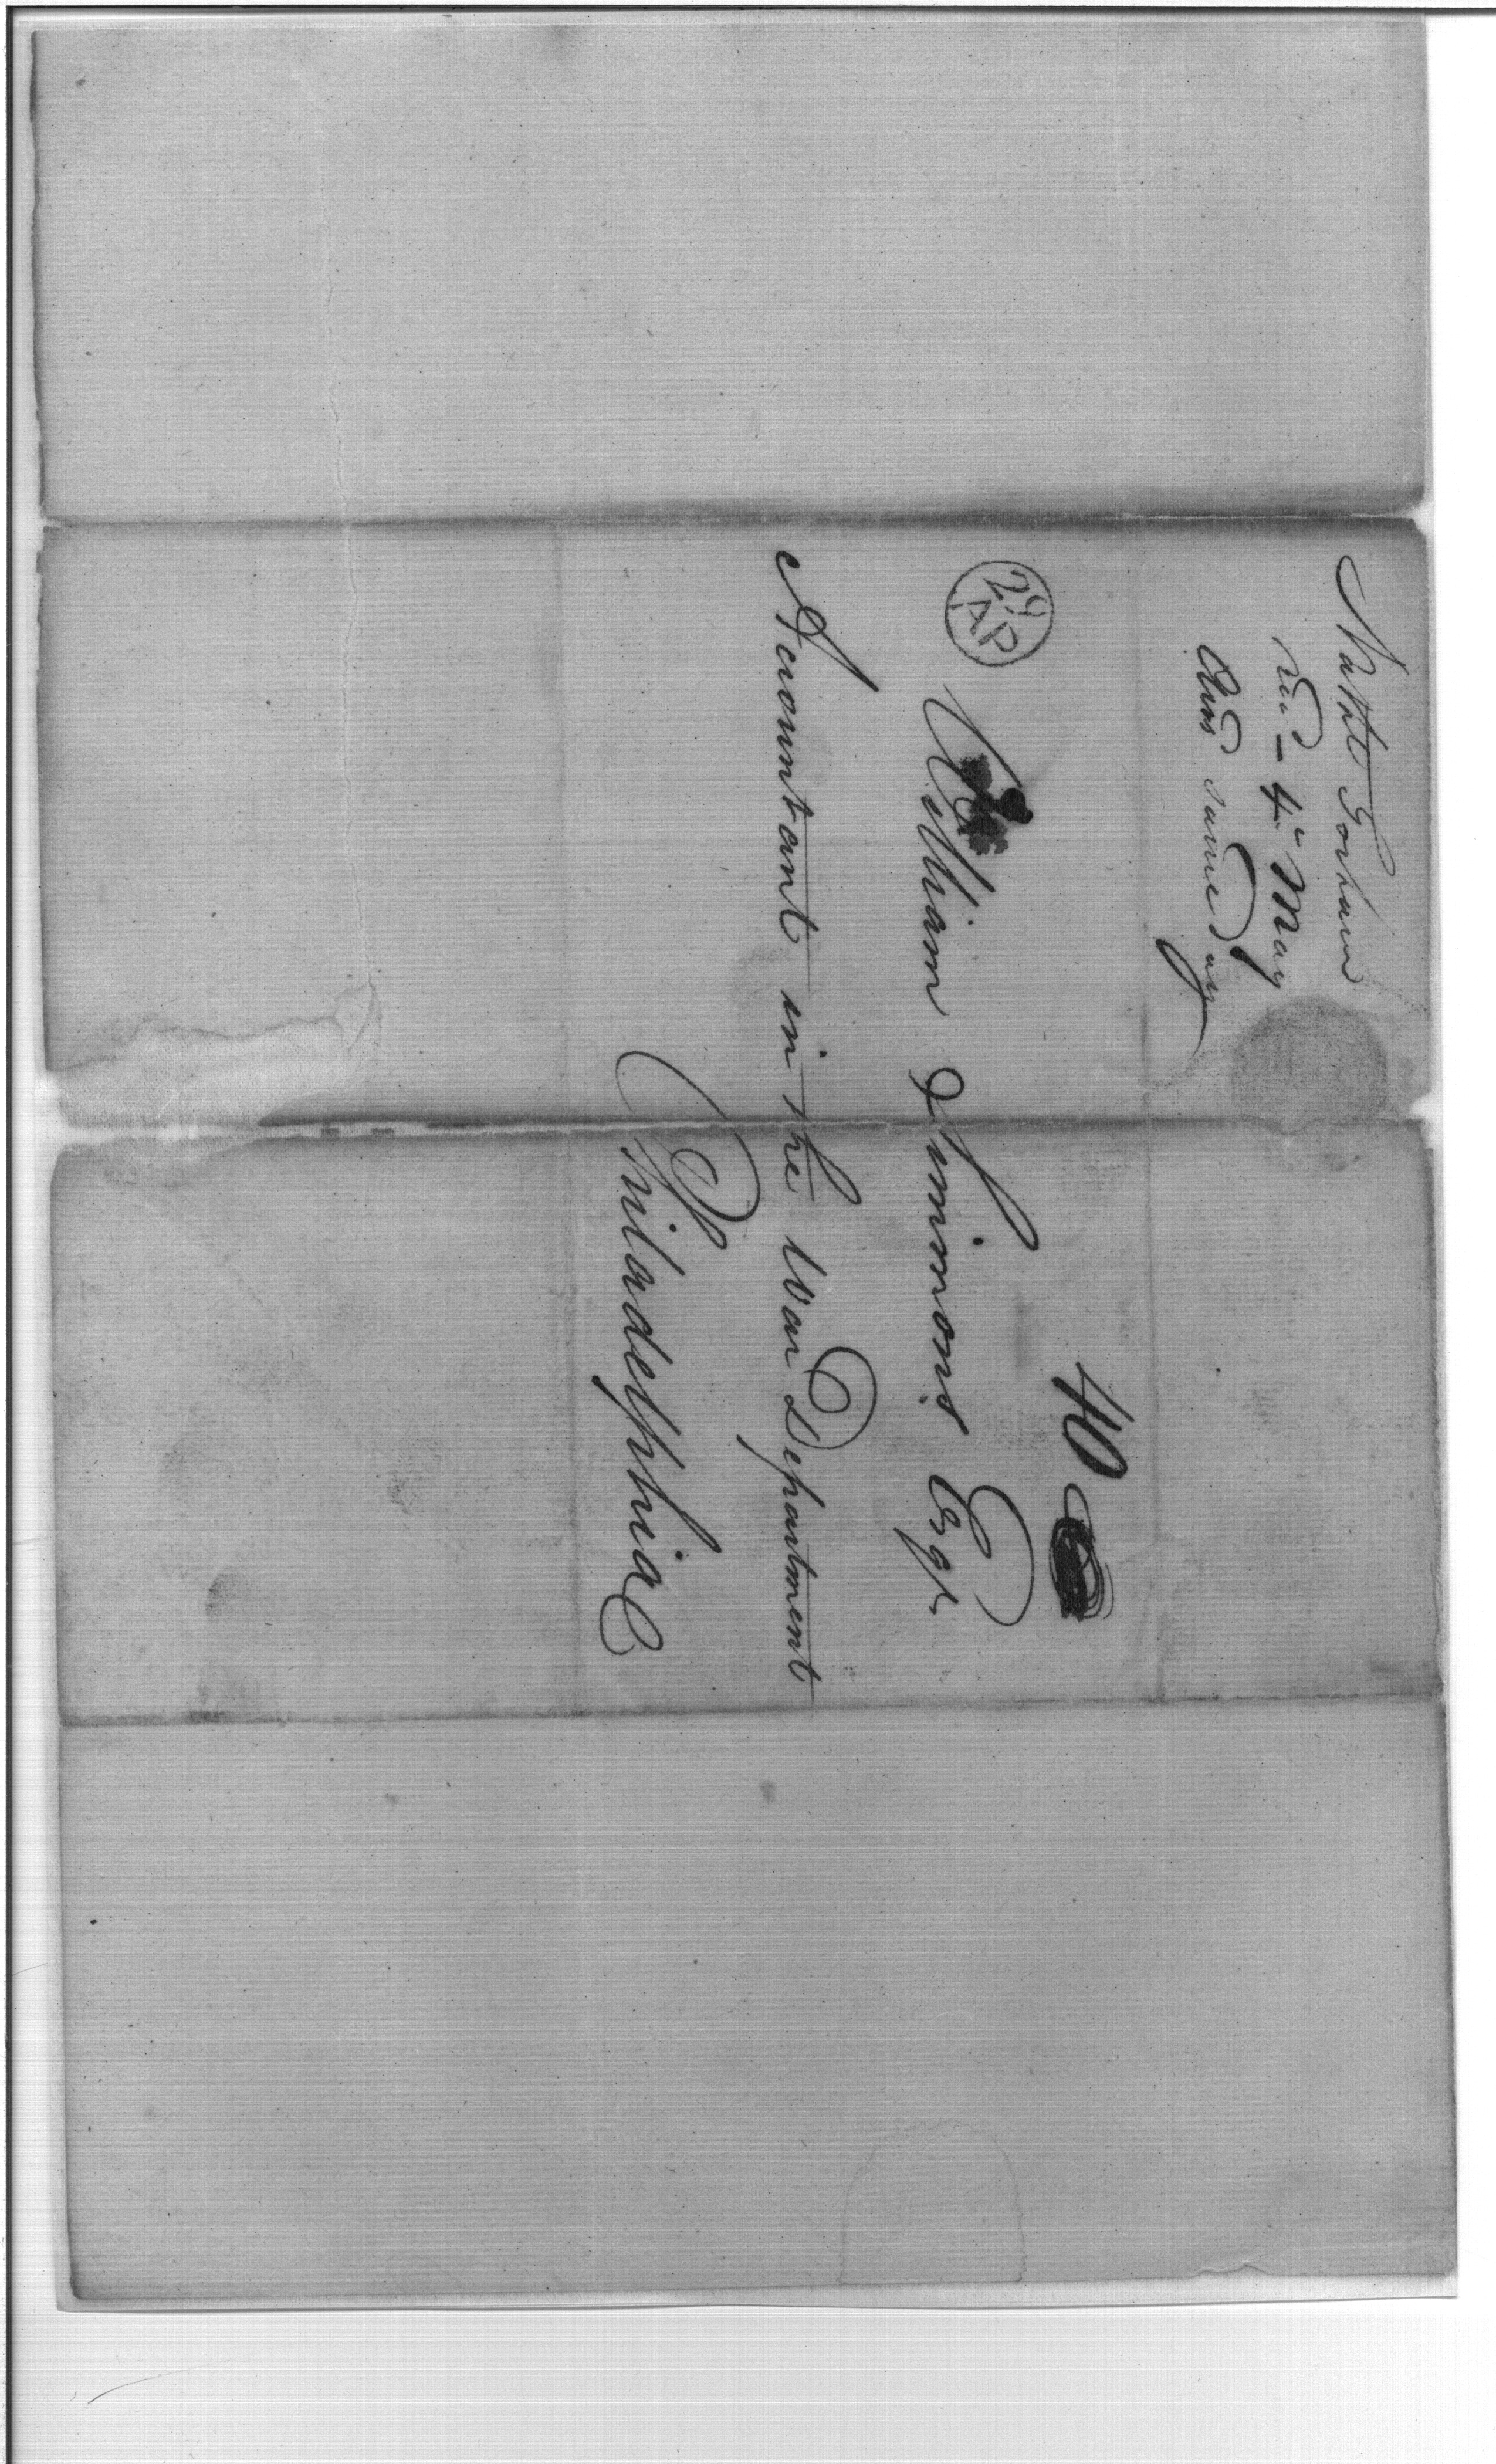 Nathl Gorham
recd - 4th May
Ansd same day
40
29
AP
William Simmons Esqr
Accountant in the War Department
Philadelphia